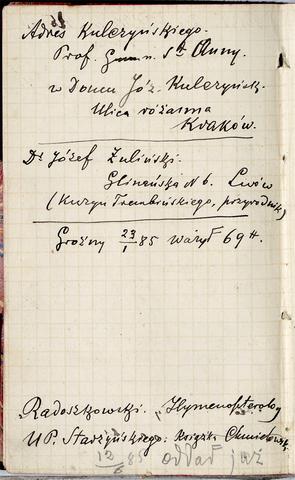 Adres Kulczyńskiego.
Prof. Gymn. Sw Anny.
w Domu Józ. Kulczyńsk.
Ulica różanna
Kraków.
Dr Józef Żuliński.
Glinańska N 6. Lwów
(Kuzyn Trembińskiego, przyrodnik)
Groźny 23/1 85 ważył 69 tt.
Radoszkowski. Hymenopterolog
U P. Stadzyńskiego: książka Chmielowsk.
12/6 85 oddał już